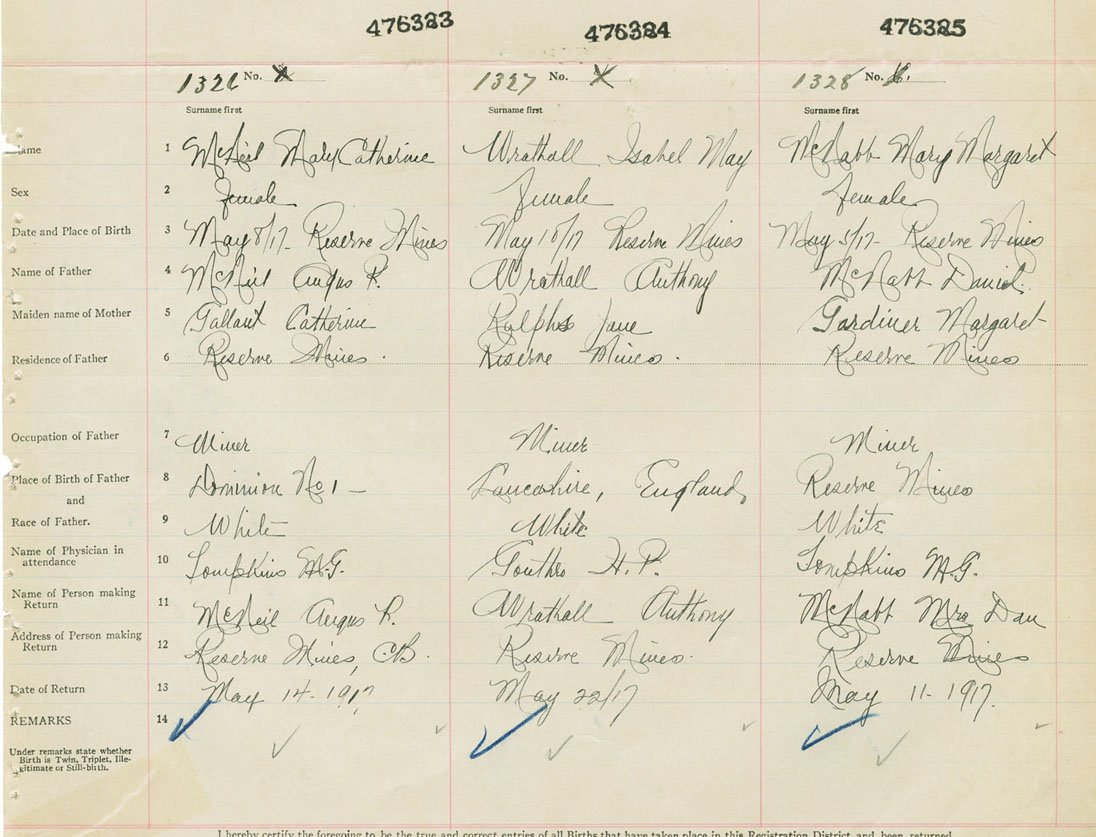 476323 476324 476325
1326 No. 1327 No. 1328 No.
Surname first Surname first Surname first
Name 1 McNeil Mary Catherine Wrathall Isabel May McNabb Mary Margaret
Sex 2 female female female
Date and Place of Birth 3 May 8/17- Reserve Mines May 18/17 Reserve Mines May 5/17- Reserve Mines
Name of Father 4 McNeil Angus R. Wrathall Anthony McNabb Daniel.
Maiden name of Mother 5 Gallant Catherine Ralphs Jane Gardiner Margaret
Residence of Father 6 Reserve Mines. Reserve Mines. Reserve Mines
Occupation of Father 7 Miner Miner Miner
Place of Birth of Father 8 Dominion No 1 — Lancashire, England, Reserve Mines
and
Race of Father. 9 White White White
Name of Physician in attendance 10 Tompkins M.G. H. P. Tompkins M.G.
Name of Person making Return 11 McNeil Angus R. Wrathall Anthony McNabb Mrs Dan
Address of Person making Return 12 Reserve Mines, CB. Reserve Mines. Reserve Mines
Date of Return 13 May 14-1917 May 22/17 May 11-1917.
REMARKS 14
Under remarks state whether
Birth is Twin, Triplet, Ille-
gitimate or Still-birth.
I hereby certify the foregoing to be the true and correct entries of all Births that have taken place in this Registration District and been returned